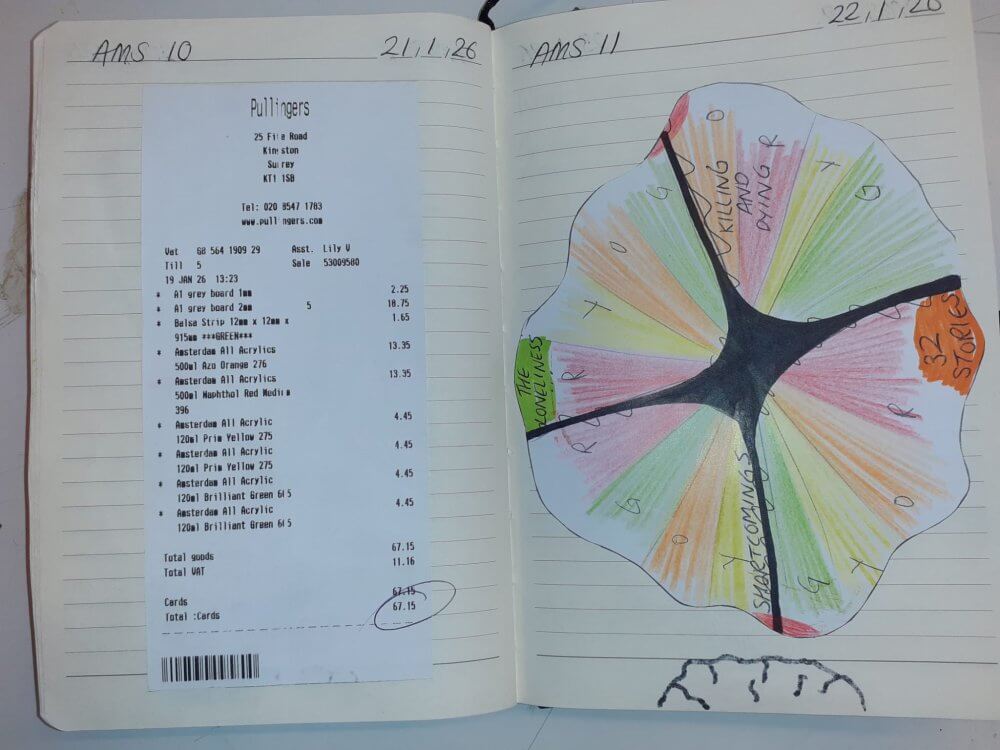 AMS 10
21,1,26
Pullingers
25 Fife Road
Kingston
Surrey
KT1 1SB
Tel: 020 8547 1783
www.pullingers.com
Vat GB 564 1909 29 Asst. Lily V
Till 5 Sale 53009580
19 JAN 26 13:23
* A1 grey board 1mm 2.25
* A1 grey board 2mm 5 18.75
* Balsa Strip 12mm x 12mm x 1.65
915mm ***GREEN***
* Amsterdam All Acrylics 13.35
500ml Azo Orange 276
* Amsterdam All Acrylics 13.35
500ml Naphthol Red Medium
396
* Amsterdam All Acrylic 4.45
120ml Prim Yellow 275
* Amsterdam All Acrylic 4.45
120ml Prim Yellow 275
* Amsterdam All Acrylic 4.45
120ml Brilliant Green 615
* Amsterdam All Acrylic 4.45
120ml Brilliant Green 615
Total goods 67.15
Total VAT 11.16
67.15
Cards 67.15
Total :Cards
AMS 11
22,1,26
G
O
KILLING
AND
DYING
R
Y
G
O
Y
THE
LONELINESS
R
32
STORIES
R
R
G
O
Y
SHORTCOMINGS
G
Y
O